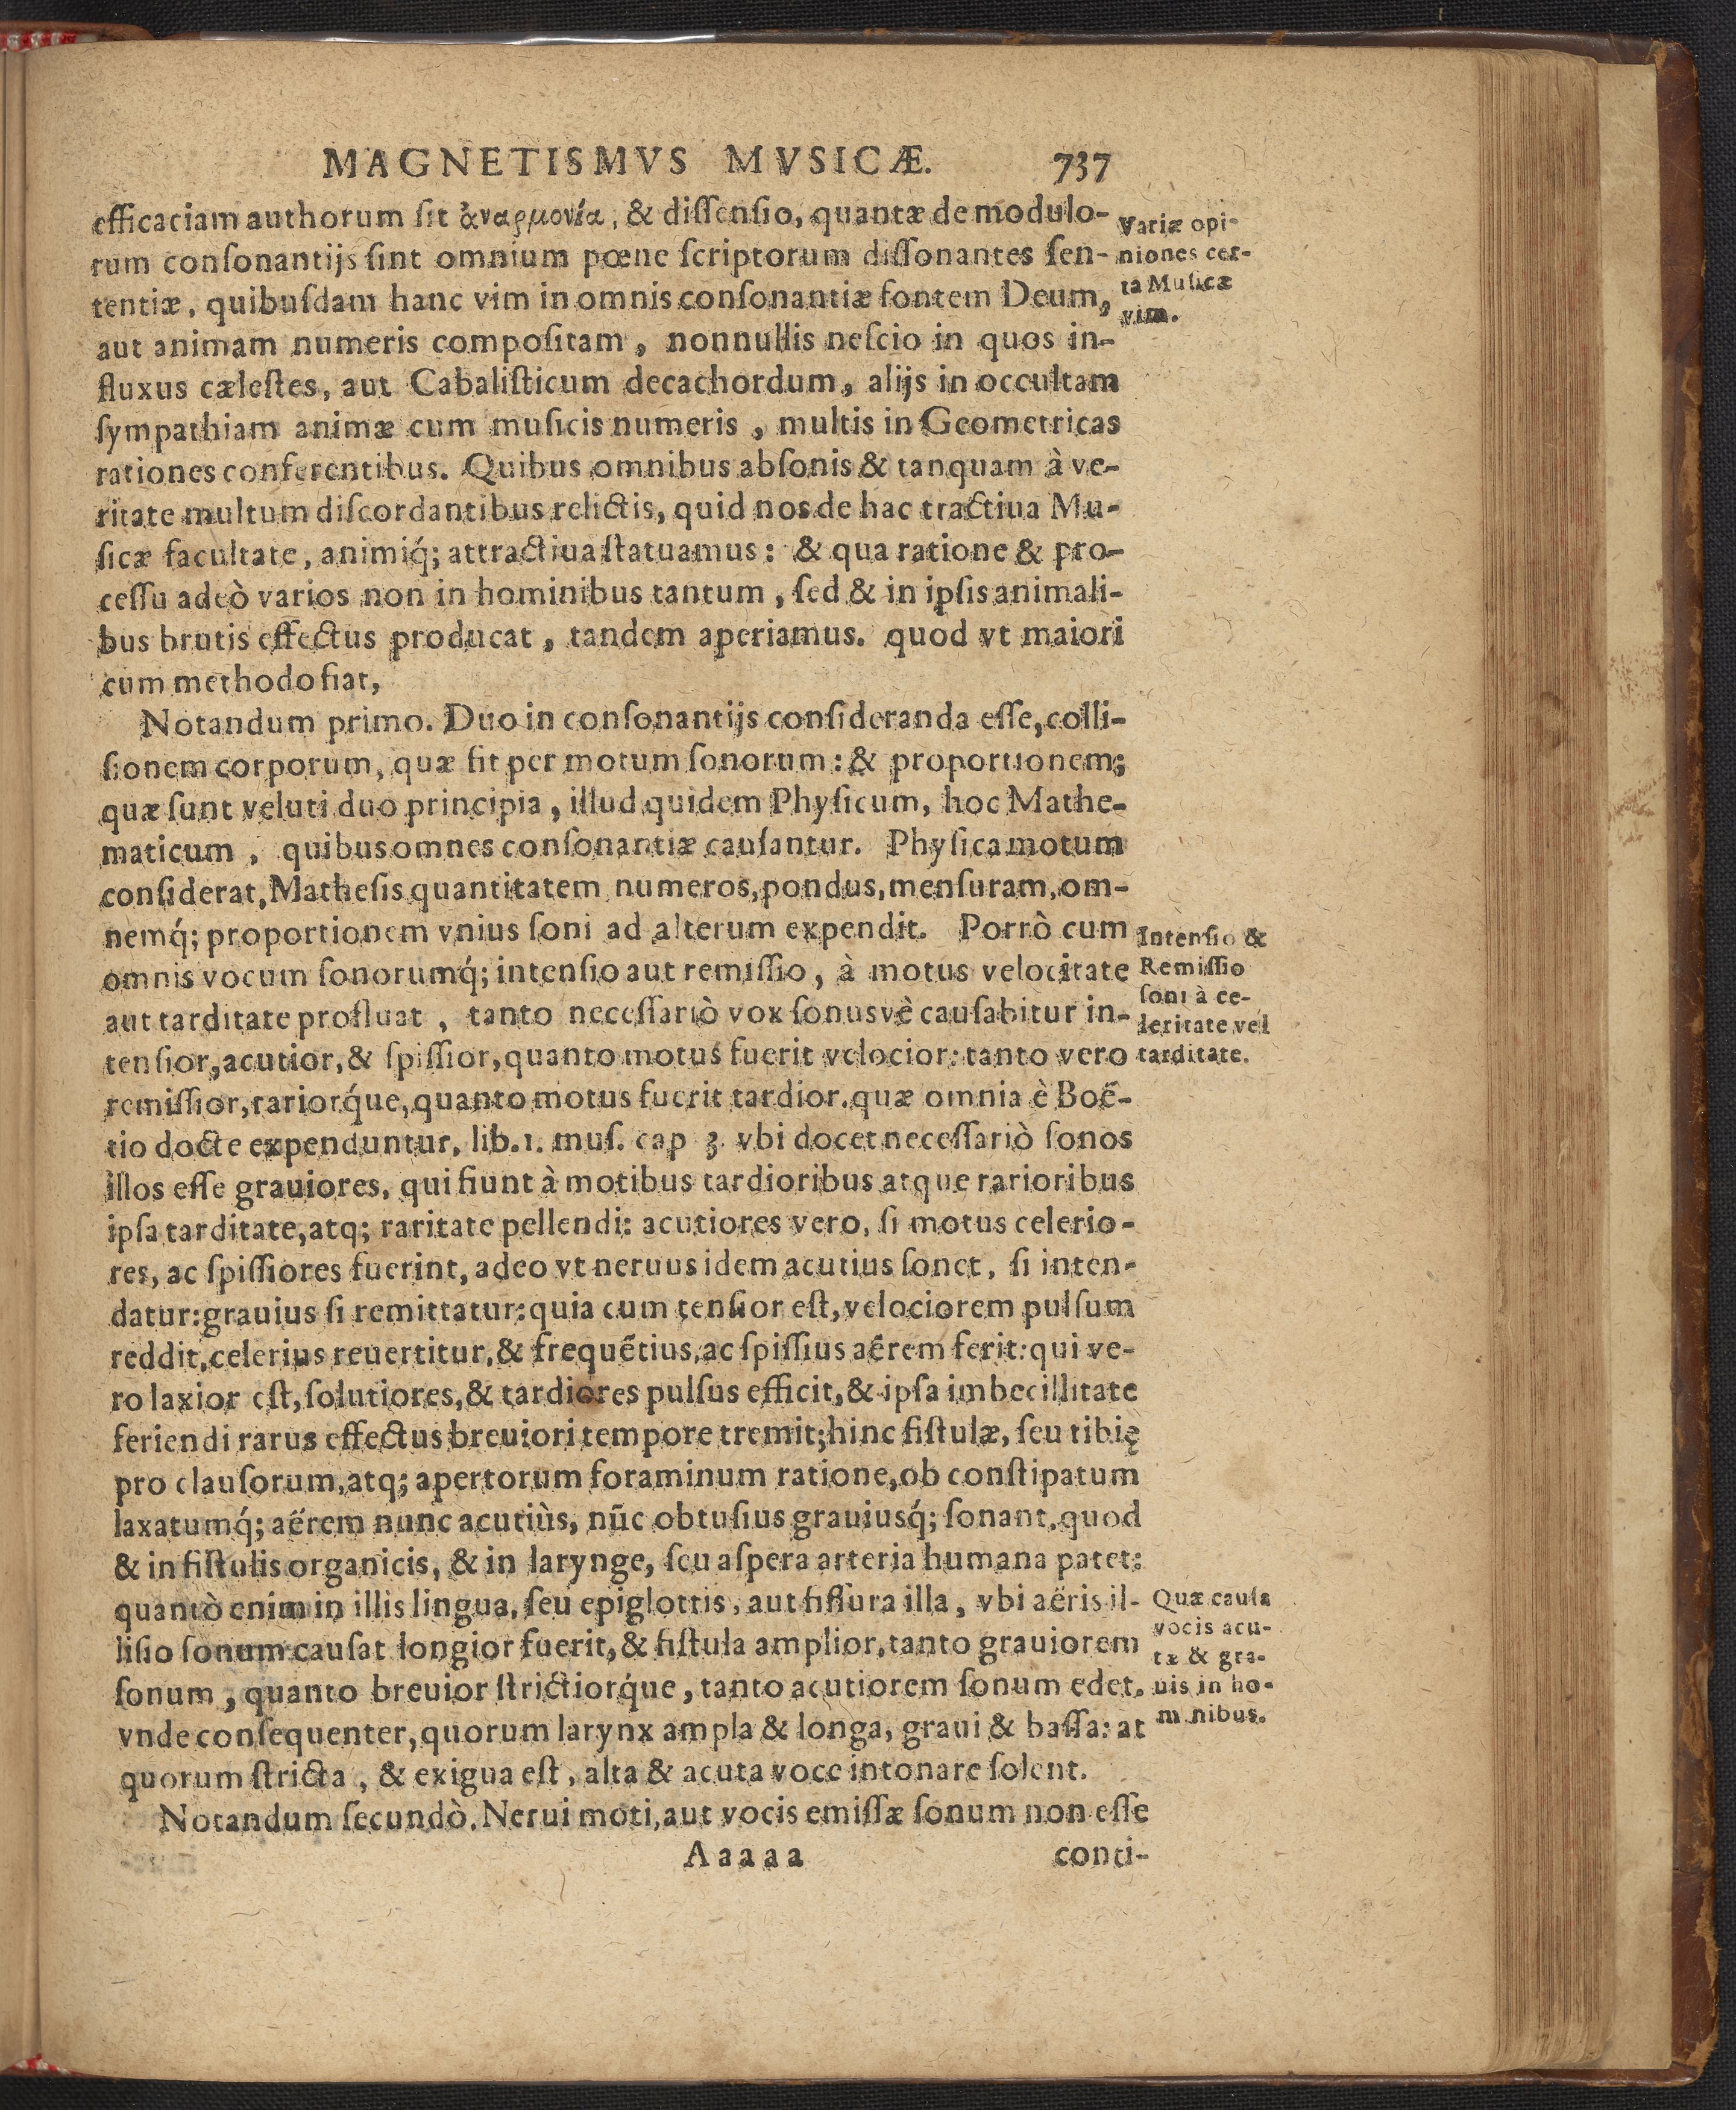 MAGNETISMVS MVSICÆ. 737
efficaciam authorum ſit ἀναρμονία, & diſſenſio, quantæ de modulo-
rum conſonantijs ſint omnium pœne ſcriptorum diſſonantes ſen-
tentiæ, quibuſdam hanc vim in omnis conſonantiæ fontem Deum,
aut animam numeris compoſitam, nonnullis neſcio in quos in-
fluxus cæleſtes, aut Cabaliſticum decachordum, alijs in occultam
ſympathiam animæ cum muſicis numeris, multis in Geometricas
rationes conferentibus. Quibus omnibus abſonis & tanquam à ve-
ritate multum diſcordantibus relictis, quid nos de hac tractiua Mu-
ſicæ facultate, animiq́; attractiua ſtatuamus: & qua ratione & pro-
ceſſu adeò varios non in hominibus tantum, ſed & in ipſis animali-
bus brutis effectus producat, tandem aperiamus. quod vt maiori
cum methodo fiat,
Variæ opi-
niones cer-
ta Muſicæ
vim.
Notandum primo. Duo in conſonantijs conſideranda eſſe, colli-
ſionem corporum, quæ fit per motum ſonorum: & proportionem;
quæ ſunt veluti duo principia, illud quidem Phyſicum, hoc Mathe-
maticum, quibus omnes conſonantiæ cauſantur. Phyſica motum
conſiderat, Matheſis quantitatem numeros, pondus, menſuram, om-
nemq́; proportionem vnius ſoni ad alterum expendit. Porrò cum
omnis vocum ſonorumq́; intenſio aut remiſſio, à motus velocitate
aut tarditate profluat, tanto neceſſariò vox ſonusvè cauſabitur in-
tenſior, acutior, & ſpiſſior, quanto motus fuerit velocior: tanto vero
remiſſior, rariorq́ue, quanto motus fuerit tardior. quæ omnia è Boë-
tio docte expenduntur, lib. 1. muſ. cap 3. vbi docet neceſſariò ſonos
illos eſſe grauiores, qui fiunt à motibus tardioribus atque rarioribus
ipſa tarditate, atq; raritate pellendi: acutiores vero, ſi motus celerio-
res, ac ſpiſſiores fuerint, adeo vt neruus idem acutius ſonet, ſi inten-
datur: grauius ſi remittatur: quia cum tenſior eſt, velociorem pulſum
reddit, celerius reuertitur, & frequẽtius, ac ſpiſſius aërem ferit: qui ve-
ro laxior eſt, ſolutiores, & tardiores pulſus efficit, & ipſa imbecillitate
feriendi rarus effectus breuiori tempore tremit; hinc fiſtulæ, ſeu tibię
pro clauſorum, atq; apertorum foraminum ratione, ob conſtipatum
laxatumq́; aërem nunc acutiùs, nũc obtuſius grauiusq́; ſonant. quod
& in fiſtulis organicis, & in larynge, ſeu aſpera arteria humana patet:
quantò enim in illis lingua, ſeu epiglottis, aut fiſſura illa, vbi aëris il-
liſio ſonum cauſat longior fuerit, & fiſtula amplior, tanto grauiorem
ſonum, quanto breuior ſtrictiorq́ue, tanto acutiorem ſonum edet.
vnde conſequenter, quorum larynx ampla & longa, graui & baſſa: at
quorum ſtricta, & exigua eſt, alta & acuta voce intonare ſolent.
Intenſio &
Remiſſio
ſoni à ce-
leritate vel
tarditate.
Quæ cauſa
vocis acu-
tæ & gra-
uis in ho-
minibus.
Notandum ſecundò. Nerui moti, aut vocis emiſſæ ſonum non eſſe
Aaaaa conti-